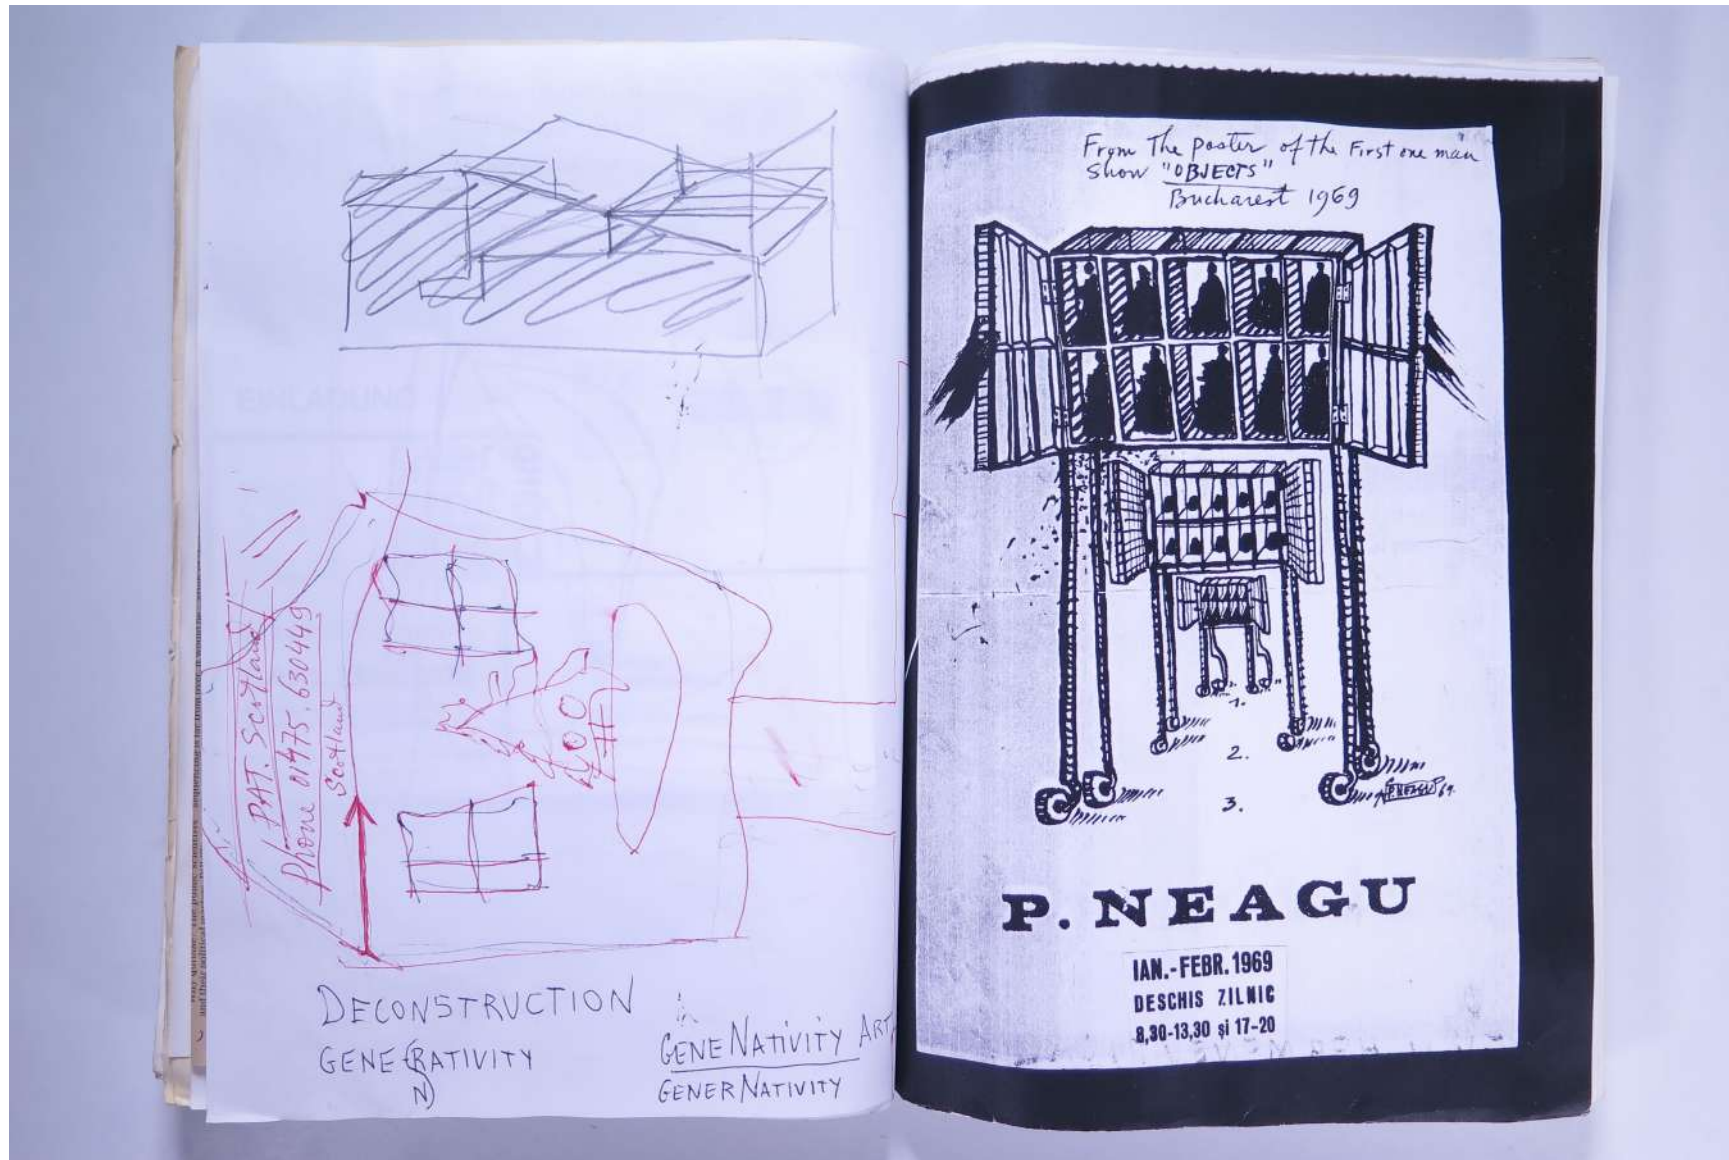 PAT. Scotland
Phone 01475.630449
Scotland
DECONSTRUCTION
GENE(R)ATIVITY
N)
in
GENENATIVITY ART
GENERNATIVITY
From The poster of the First one man
Show "OBJECTS"
Bucharest 1969
1.
2.
3.
P. NEAGU 69.
P. NEAGU
IAN.-FEBR. 1969
DESCHIS ZILNIC
8,30-13,30 și 17-20
EINLADUNG